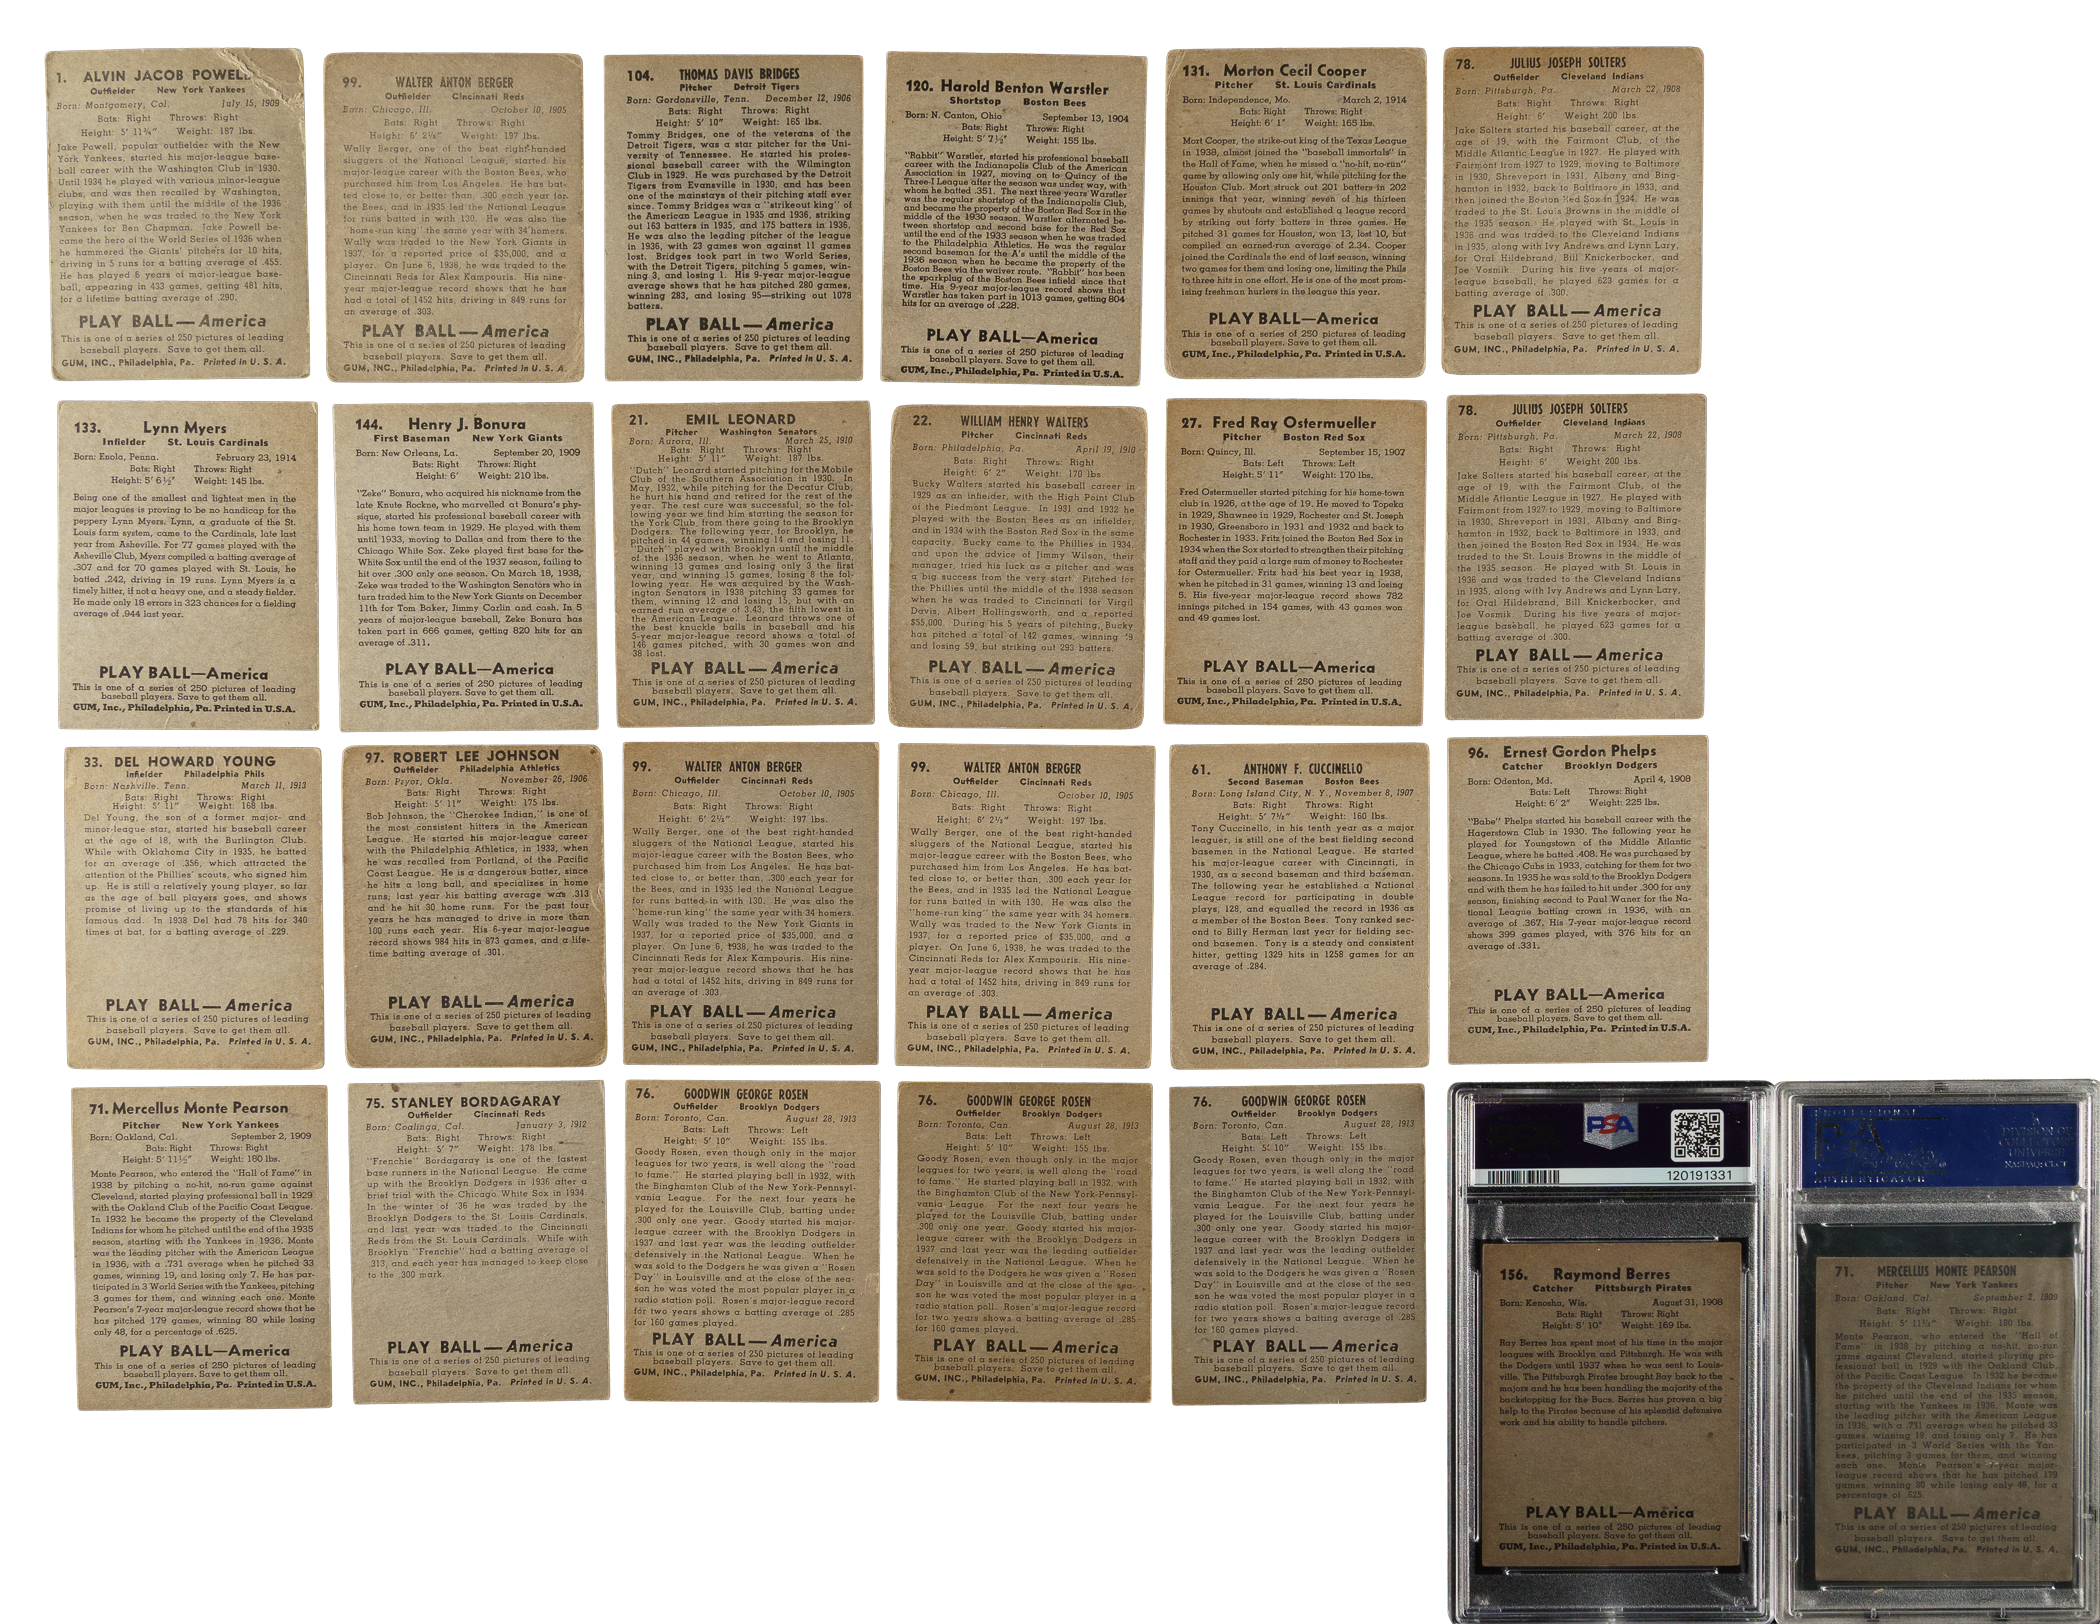 1. ALVIN JACOB POWELL
Outfielder New York Yankees
Born: Montgomery, Col. July 15, 1909
Bats: Right Throws: Right
Height: 5' 11¾" Weight: 187 lbs.
Jake Powell, popular outfielder with the New
York Yankees, started his major-league base-
ball career with the Washington Club in 1930.
Until 1934 he played with various minor-league
clubs, and was then recalled by Washington,
playing with them until the middle of the 1936
season, when he was traded to the New York
Yankees for Ben Chapman. Jake Powell be-
came the hero of the World Series of 1936 when
he hammered the Giants' pitchers for 10 hits,
driving in 5 runs for a batting average of .455.
He has played 6 years of major-league base-
ball, appearing in 433 games, getting 481 hits,
for a lifetime batting average of .290.
PLAY BALL — America
This is one of a series of 250 pictures of leading
baseball players. Save to get them all.
GUM, INC., Philadelphia, Pa. Printed in U. S. A.
99. WALTER ANTON BERGER
Outfielder Cincinnati Reds
Born: Chicago, Ill. October 10, 1905
Bats: Right Throws: Right
Height: 6' 2½" Weight: 197 lbs.
Wally Berger, one of the best right-handed
sluggers of the National League, started his
major-league career with the Boston Bees, who
purchased him from Los Angeles. He has bat-
ted close to, or better than, .300 each year for
the Bees, and in 1935 led the National League
for runs batted in with 130. He was also the
"home-run king" the same year with 34 homers.
Wally was traded to the New York Giants in
1937, for a reported price of $35,000, and a
player. On June 6, 1938, he was traded to the
Cincinnati Reds for Alex Kampouris. His nine-
year major-league record shows that he has
had a total of 1452 hits, driving in 849 runs for
an average of .303.
PLAY BALL — America
This is one of a series of 250 pictures of leading
baseball players. Save to get them all.
GUM, INC., Philadelphia, Pa. Printed in U. S. A.
104. THOMAS DAVIS BRIDGES
Pitcher Detroit Tigers
Born: Gordonsville, Tenn. December 12, 1906
Bats: Right Throws: Right
Height: 5' 10" Weight: 165 lbs.
Tommy Bridges, one of the veterans of the
Detroit Tigers, was a star pitcher for the Uni-
versity of Tennessee. He started his profes-
sional baseball career with the Wilmington
Club in 1929. He was purchased by the Detroit
Tigers from Evansville in 1930, and has been
one of the mainstays of their pitching staff ever
since. Tommy Bridges was a "strikeout king" of
the American League in 1935 and 1936, striking
out 163 batters in 1935, and 175 batters in 1936.
He was also the leading pitcher of the league
in 1936, with 23 games won against 11 games
lost. Bridges took part in two World Series,
with the Detroit Tigers, pitching 5 games, win-
ning 3, and losing 1. His 9-year major-league
average shows that he has pitched 280 games,
winning 283, and losing 95—striking out 1078
batters.
PLAY BALL — America
This is one of a series of 250 pictures of leading
baseball players. Save to get them all.
GUM, INC., Philadelphia, Pa. Printed in U. S. A.
120. Harold Benton Warstler
Shortstop Boston Bees
Born: N. Canton, Ohio September 13, 1904
Bats: Right Throws: Right
Height: 5' 7½" Weight: 155 lbs.
"Rabbit" Warstler, started his professional baseball
career with the Indianapolis Club of the American
Association in 1927, moving on to Quincy of the
Three-I League after the season was under way, with
whom he batted .351. The next three years Warstler
was the regular shortstop of the Indianapolis Club,
and became the property of the Boston Red Sox in the
middle of the 1930 season. Warstler alternated be-
tween shortstop and second base for the Red Sox
until the end of the 1933 season when he was traded
to the Philadelphia Athletics. He was the regular
second baseman for the A's until the middle of the
1936 season when he became the property of the
Boston Bees via the waiver route. "Rabbit" has been
the sparkplug of the Boston Bees infield since that
time. His 9-year major-league record shows that
Warstler has taken part in 1013 games, getting 804
hits for an average of .228.
PLAY BALL—America
This is one of a series of 250 pictures of leading
baseball players. Save to get them all.
GUM, Inc., Philadelphia, Pa. Printed in U.S.A.
131. Morton Cecil Cooper
Pitcher St. Louis Cardinals
Born: Independence, Mo. March 2, 1914
Bats: Right Throws: Right
Height: 6' 1" Weight: 165 lbs.
Mort Cooper, the strike-out king of the Texas League
in 1938, almost joined the "baseball immortals" in
the Hall of Fame, when he missed a "no-hit, no-run"
game by allowing only one hit, while pitching for the
Houston Club. Mort struck out 201 batters in 202
innings that year, winning seven of his thirteen
games by shutouts and established a league record
by striking out forty batters in three games. He
pitched 31 games for Houston, won 13, lost 10, but
compiled an earned-run average of 2.34. Cooper
joined the Cardinals the end of last season, winning
two games for them and losing one, limiting the Phils
to three hits in one effort. He is one of the most prom-
ising freshman hurlers in the league this year.
PLAY BALL—America
This is one of a series of 250 pictures of leading
baseball players. Save to get them all.
GUM, Inc., Philadelphia, Pa. Printed in U.S.A.
78. JULIUS JOSEPH SOLTERS
Outfielder Cleveland Indians
Born: Pittsburgh, Pa. March 22, 1908
Bats: Right Throws: Right
Height: 6' Weight 200 lbs.
Jake Solters started his baseball career, at the
age of 19, with the Fairmont Club, of the
Middle Atlantic League in 1927. He played with
Fairmont from 1927 to 1929, moving to Baltimore
in 1930, Shreveport in 1931, Albany and Bing-
hamton in 1932, back to Baltimore in 1933, and
then joined the Boston Red Sox in 1934. He was
traded to the St. Louis Browns in the middle of
the 1935 season. He played with St. Louis in
1936 and was traded to the Cleveland Indians
in 1935, along with Ivy Andrews and Lynn Lary,
for Oral Hildebrand, Bill Knickerbocker, and
Joe Vosmik. During his five years of major-
league baseball, he played 623 games for a
batting average of .300.
PLAY BALL — America
This is one of a series of 250 pictures of leading
baseball players. Save to get them all.
GUM, INC., Philadelphia, Pa. Printed in U. S. A.
133. Lynn Myers
Infielder St. Louis Cardinals
Born: Enola, Penna. February 23, 1914
Bats: Right Throws: Right
Height: 5' 6½" Weight: 145 lbs.
Being one of the smallest and lightest men in the
major leagues is proving to be no handicap for the
peppery Lynn Myers. Lynn, a graduate of the St.
Louis farm system, came to the Cardinals, late last
year from Asheville. For 77 games played with the
Asheville Club, Myers compiled a batting average of
.307 and for 70 games played with St. Louis, he
batted .242, driving in 19 runs. Lynn Myers is a
timely hitter, if not a heavy one, and a steady fielder.
He made only 18 errors in 323 chances for a fielding
average of .944 last year.
PLAY BALL—America
This is one of a series of 250 pictures of leading
baseball players. Save to get them all.
GUM, Inc., Philadelphia, Pa. Printed in U.S.A.
144. Henry J. Bonura
First Baseman New York Giants
Born: New Orleans, La. September 20, 1909
Bats: Right Throws: Right
Height: 6' Weight: 210 lbs.
"Zeke" Bonura, who acquired his nickname from the
late Knute Rockne, who marvelled at Bonura's phy-
sique, started his professional baseball career with
his home town team in 1929. He played with them
until 1933, moving to Dallas and from there to the
Chicago White Sox. Zeke played first base for the
White Sox until the end of the 1937 season, failing to
hit over .300 only one season. On March 18, 1938,
Zeke was traded to the Washington Senators who in
turn traded him to the New York Giants on December
11th for Tom Baker, Jimmy Carlin and cash. In 5
years of major-league baseball, Zeke Bonura has
taken part in 666 games, getting 820 hits for an
average of .311.
PLAY BALL—America
This is one of a series of 250 pictures of leading
baseball players. Save to get them all.
GUM, Inc., Philadelphia, Pa. Printed in U.S.A.
21. EMIL LEONARD
Pitcher Washington Senators
Born: Aurora, Ill. March 25, 1910
Bats: Right Throws: Right
Height: 5' 11" Weight: 187 lbs.
"Dutch" Leonard started pitching for the Mobile
Club of the Southern Association in 1930. In
May, 1932, while pitching for the Decatur Club,
he hurt his hand and retired for the rest of the
year. The rest cure was successful, so the fol-
lowing year we find him starting the season for
the York Club, from there going to the Brooklyn
Dodgers. The following year, for Brooklyn, he
pitched in 44 games, winning 14 and losing 11.
"Dutch" played with Brooklyn until the middle
of the 1936 season, when he went to Atlanta,
winning 13 games and losing only 3 the first
year, and winning 15 games, losing 8 the fol-
lowing year. He was acquired by the Wash-
ington Senators in 1938 pitching 33 games for
them, winning 12 and losing 15, but with an
earned run average of 3.43, the fifth lowest in
the American League. Leonard throws one of
the best knuckle balls in baseball and his
5-year major-league record shows a total of
146 games pitched, with 30 games won and
38 lost.
PLAY BALL — America
This is one of a series of 250 pictures of leading
baseball players. Save to get them all.
GUM, INC., Philadelphia, Pa. Printed in U. S. A.
22. WILLIAM HENRY WALTERS
Pitcher Cincinnati Reds
Born: Philadelphia, Pa. April 19, 1910
Bats: Right Throws: Right
Height: 6' 2" Weight: 170 lbs.
Bucky Walters started his baseball career in
1929 as an infielder, with the High Point Club
of the Piedmont League. In 1931 and 1932 he
played with the Boston Bees as an infielder,
and in 1934 with the Boston Red Sox in the same
capacity. Bucky came to the Phillies in 1934,
and upon the advice of Jimmy Wilson, their
manager, tried his luck as a pitcher and was
a big success from the very start. Pitched for
the Phillies until the middle of the 1938 season
when he was traded to Cincinnati for Virgil
Davis, Albert Hollingsworth, and a reported
$55,000. During his 5 years of pitching, Bucky
has pitched a total of 142 games, winning 49
and losing 59, but striking out 293 batters.
PLAY BALL — America
This is one of a series of 250 pictures of leading
baseball players. Save to get them all.
GUM, INC., Philadelphia, Pa. Printed in U. S. A.
27. Fred Ray Ostermueller
Pitcher Boston Red Sox
Born: Quincy, Ill. September 15, 1907
Bats: Left Throws: Left
Height: 5' 11" Weight: 170 lbs.
Fred Ostermueller started pitching for his home-town
club in 1926, at the age of 19. He moved to Topeka
in 1929, Shawnee in 1929, Rochester and St. Joseph
in 1930, Greensboro in 1931 and 1932 and back to
Rochester in 1933. Fritz joined the Boston Red Sox in
1934 when the Sox started to strengthen their pitching
staff and they paid a large sum of money to Rochester
for Ostermueller. Fritz had his best year in 1938,
when he pitched in 31 games, winning 13 and losing
5. His five-year major-league record shows 782
innings pitched in 154 games, with 43 games won
and 49 games lost.
PLAY BALL—America
This is one of a series of 250 pictures of leading
baseball players. Save to get them all.
GUM, Inc., Philadelphia, Pa. Printed in U.S.A.
78. JULIUS JOSEPH SOLTERS
Outfielder Cleveland Indians
Born: Pittsburgh, Pa. March 22, 1908
Bats: Right Throws: Right
Height: 6' Weight 200 lbs.
Jake Solters started his baseball career, at the
age of 19, with the Fairmont Club, of the
Middle Atlantic League in 1927. He played with
Fairmont from 1927 to 1929, moving to Baltimore
in 1930, Shreveport in 1931, Albany and Bing-
hamton in 1932, back to Baltimore in 1933, and
then joined the Boston Red Sox in 1934. He was
traded to the St. Louis Browns in the middle of
the 1935 season. He played with St. Louis in
1936 and was traded to the Cleveland Indians
in 1935, along with Ivy Andrews and Lynn Lary,
for Oral Hildebrand, Bill Knickerbocker, and
Joe Vosmik. During his five years of major-
league baseball, he played 623 games for a
batting average of .300.
PLAY BALL — America
This is one of a series of 250 pictures of leading
baseball players. Save to get them all.
GUM, INC., Philadelphia, Pa. Printed in U. S. A.
33. DEL HOWARD YOUNG
Infielder Philadelphia Phils
Born: Nashville, Tenn. March 11, 1913
Bats: Right Throws: Right
Height: 5' 11" Weight: 168 lbs.
Del Young, the son of a former major- and
minor-league star, started his baseball career
at the age of 18, with the Burlington Club.
While with Oklahoma City in 1935, he batted
for an average of .356, which attracted the
attention of the Phillies' scouts, who signed him
up. He is still a relatively young player, so far
as the age of ball players goes, and shows
promise of living up to the standards of his
famous dad. In 1938 Del had 78 hits for 340
times at bat, for a batting average of .229.
PLAY BALL — America
This is one of a series of 250 pictures of leading
baseball players. Save to get them all.
GUM, INC., Philadelphia, Pa. Printed in U. S. A.
97. ROBERT LEE JOHNSON
Outfielder Philadelphia Athletics
Born: Pryor, Okla. November 26, 1906
Bats: Right Throws: Right
Height: 5' 11" Weight: 175 lbs.
Bob Johnson, the "Cherokee Indian," is one of
the most consistent hitters in the American
League. He started his major-league career
with the Philadelphia Athletics, in 1933, when
he was recalled from Portland, of the Pacific
Coast League. He is a dangerous batter, since
he hits a long ball, and specializes in home
runs; last year his batting average was .313
and he hit 30 home runs. For the past four
years he has managed to drive in more than
100 runs each year. His 6-year major-league
record shows 984 hits in 873 games, and a life-
time batting average of .301.
PLAY BALL — America
This is one of a series of 250 pictures of leading
baseball players. Save to get them all.
GUM, INC., Philadelphia, Pa. Printed in U. S. A.
99. WALTER ANTON BERGER
Outfielder Cincinnati Reds
Born: Chicago, Ill. October 10, 1905
Bats: Right Throws: Right
Height: 6' 2½" Weight: 197 lbs.
Wally Berger, one of the best right-handed
sluggers of the National League, started his
major-league career with the Boston Bees, who
purchased him from Los Angeles. He has bat-
ted close to, or better than, .300 each year for
the Bees, and in 1935 led the National League
for runs batted in with 130. He was also the
"home-run king" the same year with 34 homers.
Wally was traded to the New York Giants in
1937, for a reported price of $35,000, and a
player. On June 6, 1938, he was traded to the
Cincinnati Reds for Alex Kampouris. His nine-
year major-league record shows that he has
had a total of 1452 hits, driving in 849 runs for
an average of .303.
PLAY BALL — America
This is one of a series of 250 pictures of leading
baseball players. Save to get them all.
GUM, INC., Philadelphia, Pa. Printed in U. S. A.
99. WALTER ANTON BERGER
Outfielder Cincinnati Reds
Born: Chicago, Ill. October 10, 1905
Bats: Right Throws: Right
Height: 6' 2½" Weight: 197 lbs.
Wally Berger, one of the best right-handed
sluggers of the National League, started his
major-league career with the Boston Bees, who
purchased him from Los Angeles. He has bat-
ted close to, or better than, .300 each year for
the Bees, and in 1935 led the National League
for runs batted in with 130. He was also the
"home-run king" the same year with 34 homers.
Wally was traded to the New York Giants in
1937, for a reported price of $35,000, and a
player. On June 6, 1938, he was traded to the
Cincinnati Reds for Alex Kampouris. His nine-
year major-league record shows that he has
had a total of 1452 hits, driving in 849 runs for
an average of .303.
PLAY BALL — America
This is one of a series of 250 pictures of leading
baseball players. Save to get them all.
GUM, INC., Philadelphia, Pa. Printed in U. S. A.
61. ANTHONY F. CUCCINELLO
Second Baseman Boston Bees
Born: Long Island City, N. Y., November 8, 1907
Bats: Right Throws: Right
Height: 5' 7½" Weight: 160 lbs.
Tony Cuccinello, in his tenth year as a major
leaguer, is still one of the best fielding second
basemen in the National League. He started
his major-league career with Cincinnati, in
1930, as a second baseman and third baseman.
The following year he established a National
League record for participating in double
plays, 128, and equalled the record in 1936 as
a member of the Boston Bees. Tony ranked sec-
ond to Billy Herman last year for fielding sec-
ond basemen. Tony is a steady and consistent
hitter, getting 1329 hits in 1258 games for an
average of .284.
PLAY BALL — America
This is one of a series of 250 pictures of leading
baseball players. Save to get them all.
GUM, INC., Philadelphia, Pa. Printed in U. S. A.
96. Ernest Gordon Phelps
Catcher Brooklyn Dodgers
Born: Odenton, Md. April 4, 1908
Bats: Left Throws: Right
Height: 6' 2" Weight: 225 lbs.
"Babe" Phelps started his baseball career with the
Hagerstown Club in 1930. The following year he
played for Youngstown of the Middle Atlantic
League, where he batted .408. He was purchased by
the Chicago Cubs in 1933, catching for them for two
seasons. In 1935 he was sold to the Brooklyn Dodgers
and with them he has failed to hit under .300 for any
season, finishing second to Paul Waner for the Na-
tional League batting crown in 1936, with an
average of .367. His 7-year major-league record
shows 399 games played, with 376 hits for an
average of .331.
PLAY BALL—America
This is one of a series of 250 pictures of leading
baseball players. Save to get them all.
GUM, Inc., Philadelphia, Pa. Printed in U.S.A.
71. Mercellus Monte Pearson
Pitcher New York Yankees
Born: Oakland, Cal. September 2, 1909
Bats: Right Throws: Right
Height: 5' 11½" Weight: 180 lbs.
Monte Pearson, who entered the "Hall of Fame" in
1938 by pitching a no-hit, no-run game against
Cleveland, started playing professional ball in 1929
with the Oakland Club of the Pacific Coast League.
In 1932 he became the property of the Cleveland
Indians for whom he pitched until the end of the 1935
season, starting with the Yankees in 1936. Monte
was the leading pitcher with the American League
in 1936, with a .731 average when he pitched 33
games, winning 19, and losing only 7. He has par-
ticipated in 3 World Series with the Yankees, pitching
3 games for them, and winning each one. Monte
Pearson's 7-year major-league record shows that he
has pitched 179 games, winning 80 while losing
only 48, for a percentage of .625.
PLAY BALL—America
This is one of a series of 250 pictures of leading
baseball players. Save to get them all.
GUM, Inc., Philadelphia, Pa. Printed in U.S.A.
75. STANLEY BORDAGARAY
Outfielder Cincinnati Reds
Born: Coalinga, Cal. January 3, 1912
Bats: Right Throws: Right
Height: 5' 7" Weight: 178 lbs.
"Frenchie" Bordagaray is one of the fastest
base runners in the National League. He came
up with the Brooklyn Dodgers in 1936 after a
brief trial with the Chicago White Sox in 1934.
In the winter of '36 he was traded by the
Brooklyn Dodgers to the St. Louis Cardinals,
and last year was traded to the Cincinnati
Reds from the St. Louis Cardinals. While with
Brooklyn "Frenchie" had a batting average of
.313, and each year has managed to keep close
to the .300 mark.
PLAY BALL — America
This is one of a series of 250 pictures of leading
baseball players. Save to get them all.
GUM, INC., Philadelphia, Pa. Printed in U. S. A.
76. GOODWIN GEORGE ROSEN
Outfielder Brooklyn Dodgers
Born: Toronto, Can. August 28, 1913
Bats: Left Throws: Left
Height: 5' 10" Weight: 155 lbs.
Goody Rosen, even though only in the major
leagues for two years, is well along the "road
to fame." He started playing ball in 1932, with
the Binghamton Club of the New York-Pennsyl-
vania League. For the next four years he
played for the Louisville Club, batting under
.300 only one year. Goody started his major-
league career with the Brooklyn Dodgers in
1937 and last year was the leading outfielder
defensively in the National League. When he
was sold to the Dodgers he was given a "Rosen
Day" in Louisville and at the close of the sea-
son he was voted the most popular player in a
radio station poll. Rosen's major-league record
for two years shows a batting average of .285
for 160 games played.
PLAY BALL — America
This is one of a series of 250 pictures of leading
baseball players. Save to get them all.
GUM, INC., Philadelphia, Pa. Printed in U. S. A.
76. GOODWIN GEORGE ROSEN
Outfielder Brooklyn Dodgers
Born: Toronto, Can. August 28, 1913
Bats: Left Throws: Left
Height: 5' 10" Weight: 155 lbs.
Goody Rosen, even though only in the major
leagues for two years, is well along the "road
to fame." He started playing ball in 1932, with
the Binghamton Club of the New York-Pennsyl-
vania League. For the next four years he
played for the Louisville Club, batting under
.300 only one year. Goody started his major-
league career with the Brooklyn Dodgers in
1937 and last year was the leading outfielder
defensively in the National League. When he
was sold to the Dodgers he was given a "Rosen
Day" in Louisville and at the close of the sea-
son he was voted the most popular player in a
radio station poll. Rosen's major-league record
for two years shows a batting average of .285
for 160 games played.
PLAY BALL — America
This is one of a series of 250 pictures of leading
baseball players. Save to get them all.
GUM, INC., Philadelphia, Pa. Printed in U. S. A.
76. GOODWIN GEORGE ROSEN
Outfielder Brooklyn Dodgers
Born: Toronto, Can. August 28, 1913
Bats: Left Throws: Left
Height: 5' 10" Weight: 155 lbs.
Goody Rosen, even though only in the major
leagues for two years, is well along the "road
to fame." He started playing ball in 1932, with
the Binghamton Club of the New York-Pennsyl-
vania League. For the next four years he
played for the Louisville Club, batting under
.300 only one year. Goody started his major-
league career with the Brooklyn Dodgers in
1937 and last year was the leading outfielder
defensively in the National League. When he
was sold to the Dodgers he was given a "Rosen
Day" in Louisville and at the close of the sea-
son he was voted the most popular player in a
radio station poll. Rosen's major-league record
for two years shows a batting average of .285
for 160 games played.
PLAY BALL — America
This is one of a series of 250 pictures of leading
baseball players. Save to get them all.
GUM, INC., Philadelphia, Pa. Printed in U. S. A.
PSA
120191331
156. Raymond Berres
Catcher Pittsburgh Pirates
Born: Kenosha, Wis. August 31, 1908
Bats: Right Throws: Right
Height: 5' 10" Weight: 169 lbs.
Ray Berres has spent most of his time in the major
leagues with Brooklyn and Pittsburgh. He was with
the Dodgers until 1937 when he was sent to Louis-
ville. The Pittsburgh Pirates brought Ray back to the
majors and he has been handling the majority of the
backstopping for the Bucs. Berres has proven a big
help to the Pirates because of his splendid defensive
work and his ability to handle pitchers.
PLAY BALL—America
This is one of a series of 250 pictures of leading
baseball players. Save to get them all.
GUM, Inc., Philadelphia, Pa. Printed in U.S.A.
PROFESSIONAL
PSA
AUTHENTICATOR
DIVISION OF
COLLECTORS
UNIVERSE
NASDAQ: CLCT
71. MERCELLUS MONTE PEARSON
Pitcher New York Yankees
Born: Oakland, Cal. September 2, 1909
Bats: Right Throws: Right
Height: 5' 11½" Weight: 180 lbs.
Monte Pearson, who entered the "Hall of
Fame" in 1938 by pitching a no-hit, no-run
game against Cleveland, started playing pro-
fessional ball in 1929 with the Oakland Club,
of the Pacific Coast League. In 1932 he became
the property of the Cleveland Indians for whom
he pitched until the end of the 1935 season,
starting with the Yankees in 1936. Monte was
the leading pitcher with the American League
in 1936, with a .731 average when he pitched 33
games, winning 19, and losing only 7. He has
participated in 3 World Series with the Yan-
kees, pitching 3 games for them, and winning
each one. Monte Pearson's 7-year major-
league record shows that he has pitched 179
games, winning 80 while losing only 48, for a
percentage of .625.
PLAY BALL — America
This is one of a series of 250 pictures of leading
baseball players. Save to get them all.
GUM, INC., Philadelphia, Pa. Printed in U. S. A.